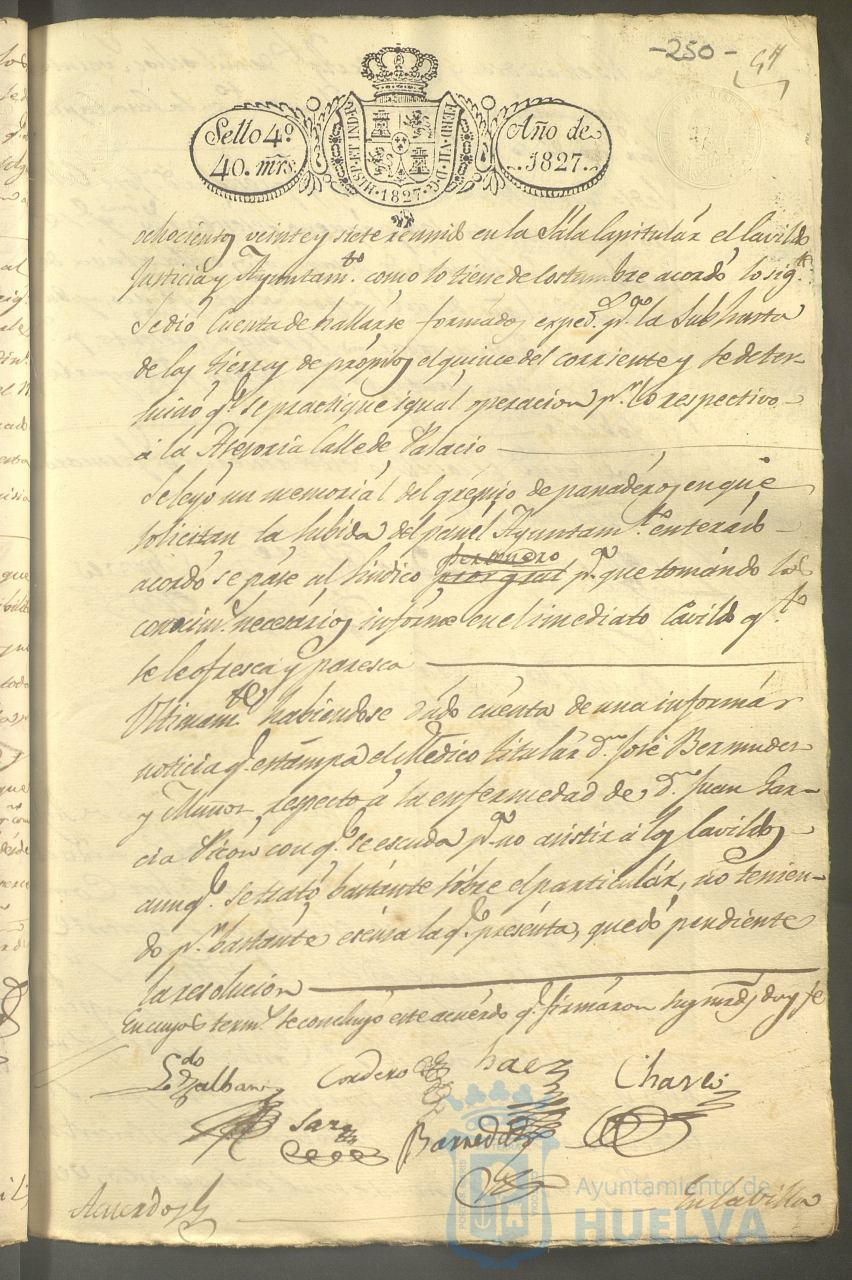 -250-
54
Sello 4º
40. mrs.
HISP. ET IND. R.
FERD. VII. D. G.
1827
Año de
1827.
ochocientos veinte y siete reunido en la Sala Capitulár el Cavildo
Justicia y Ayuntamto. como lo tiene de costumbre acordó lo sigte.
Se dió cuenta de hallarse formados exped.s pª la Subhasta
de las tierras de própios el quince del corriente y se deter-
minó qe. se practique igual operacion pr. lo respectivo
á la Asesoria Calle de Palacio
Se leyó un memoriál del grémio de panadéros en que
solicitan la subida del pan él Ayuntamto. enterádo
acordó se páse al Síndico personero
prõr gral pª. que tomándo los
conocimtos. necesários infórme en el inmediato Cavildo qto.
se le ofresca y paresca
Ultimamte. habiéndose dádo cuénta de una informár
noticia qe. estámpa el Médico titulár dn. José Bermudez
y Munoz respecto á la enfermedad de dn. Juan Gar-
cia con qe. se escuda pª. no asistir á los Cavildos
aunqe. se trató bastánte sóbre el particulár, no tenien-
do pr. bastánte escúsa la qe. presénta, quedó pendiente
la resolución
En cuyos termos. se concluyó este acuérdo qe. firmáron sus mrds doy fe
Ldo.
Cordero
Saez
Charlo
Barreda
Acuerdo
En la villa
Ayuntamiento de
HUELVA